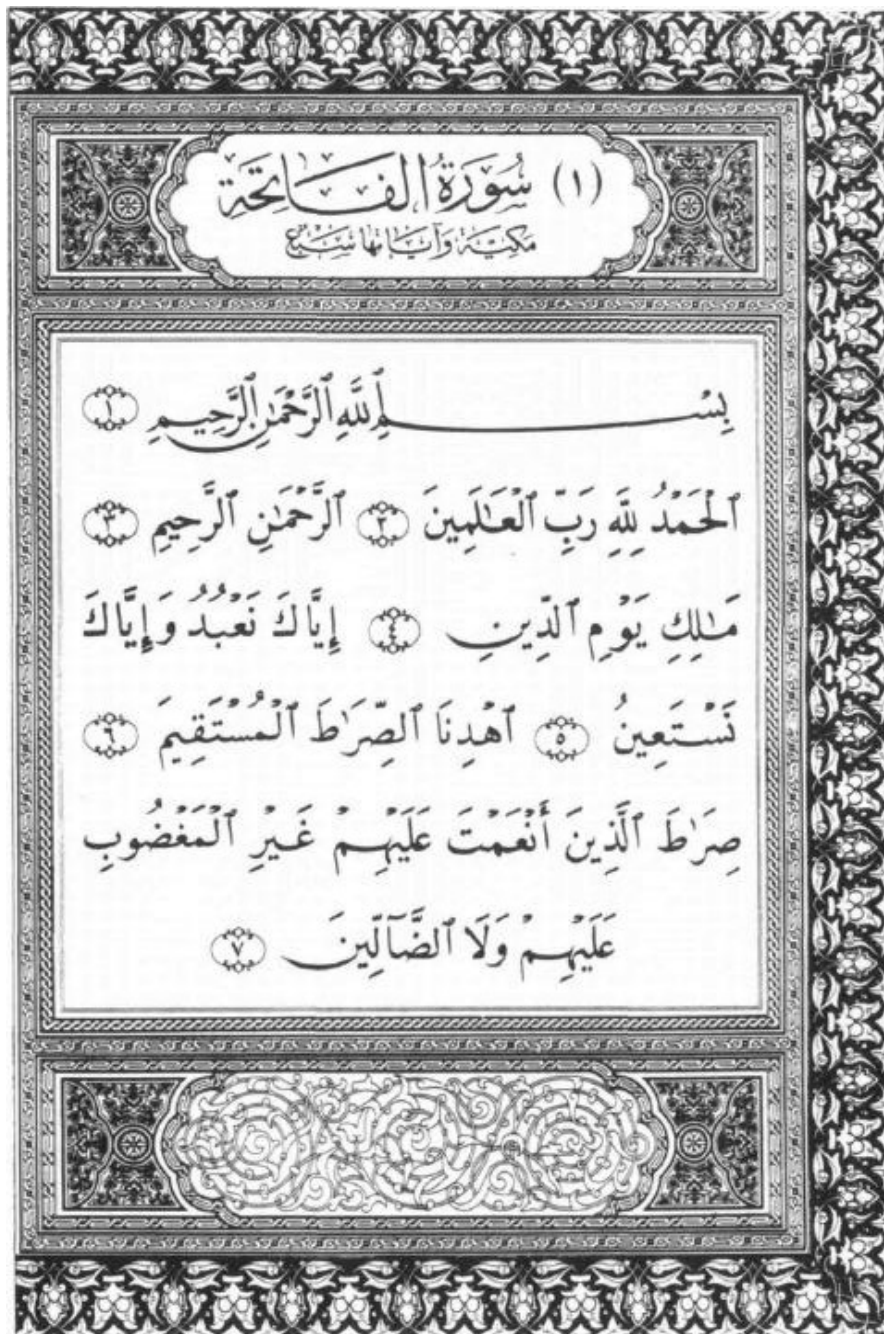 (١) سُورَةُ الفَاتِحَة
مَكيَّة وَآيَاتهَا سَبْعٌ
بِسْمِ ٱللَّهِ ٱلرَّحْمَٰنِ ٱلرَّحِيمِ ١
ٱلْحَمْدُ لِلَّهِ رَبِّ ٱلْعَٰلَمِينَ ٢ ٱلرَّحْمَٰنِ ٱلرَّحِيمِ ٣
مَٰلِكِ يَوْمِ ٱلدِّينِ ٤ إِيَّاكَ نَعْبُدُ وَإِيَّاكَ
نَسْتَعِينُ ٥ ٱهْدِنَا ٱلصِّرَٰطَ ٱلْمُسْتَقِيمَ ٦
صِرَٰطَ ٱلَّذِينَ أَنْعَمْتَ عَلَيْهِمْ غَيْرِ ٱلْمَغْضُوبِ
عَلَيْهِمْ وَلَا ٱلضَّآلِّينَ ٧